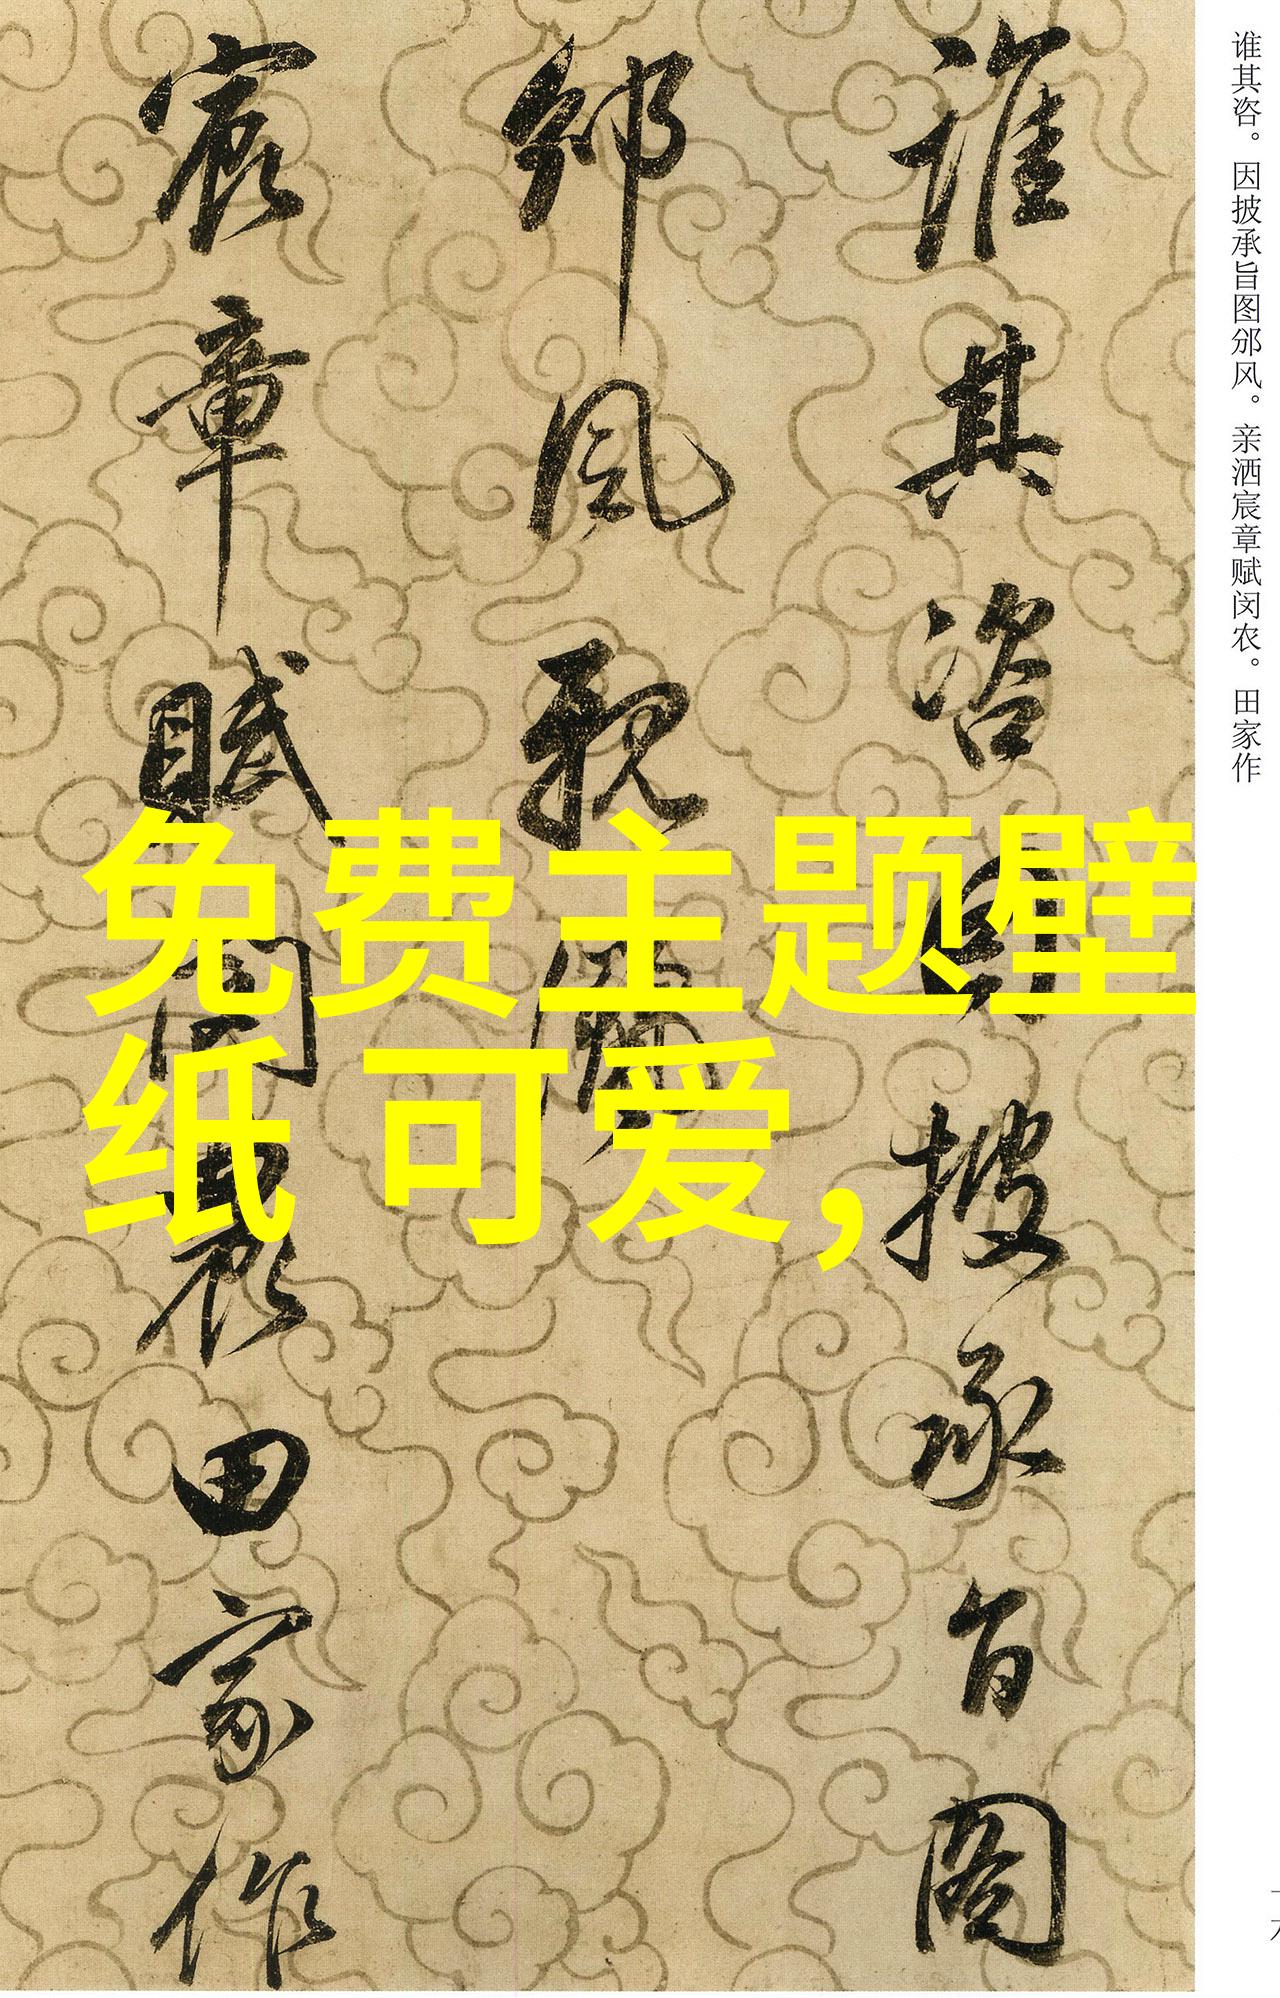 谁其咨。因披承旨图邠风。亲洒宸章赋闵农。田家作
誰其咨因披承旨圖
邠風親灑
宸章賦閔農田家作
免费主题壁
纸 可爱,